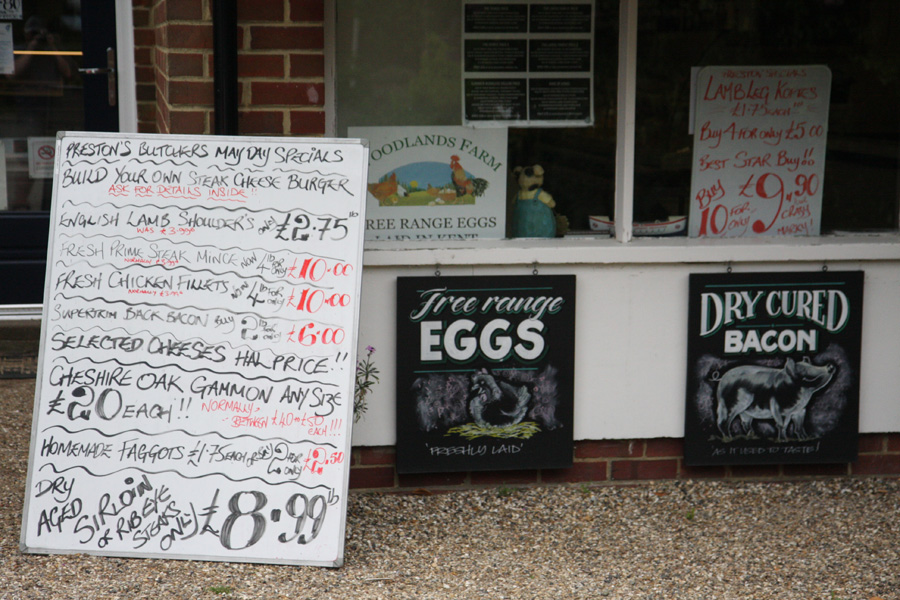 PRESTON'S BUTCHERS MAYDAY SPECIALS
BUILD YOUR OWN STEAK CHEESE BURGER
ASK FOR DETAILS INSIDE!
ENGLISH LAMB SHOULDER'S £2.75 lb
WAS £3.99
FRESH PRIME STEAK MINCE NOW 4 lb FOR ONLY £10.00
FRESH CHICKEN FILLETS NOW 4 lb FOR ONLY £10.00
SUPERTRIM BACK BACON BUY 2 lb £6.00
SELECTED CHEESES HAL PRICE!!
CHESHIRE OAK GAMMON ANY SIZE
£20 EACH!! NORMALLY BETWEEN £40 - £50 EACH!!!
HOMEMADE FAGGOTS £1.75 EACH OR 2 FOR ONLY £2.50
DRY AGED SIRLOIN OR RIBEYE STEAKS ONLY £8.99 lb
WOODLANDS FARM
FREE RANGE EGGS
LAID IN KENT
PRESTON SPECIALS
LAMB LEG
£1.75 EACH
BUY 4 FOR ONLY £5.00
BEST STAR BUY!!
BUY 10 FOR ONLY £9.90
CRAZY
Free range
EGGS
'FRESHLY LAID'
DRY CURED
BACON
'AS IT USED TO TASTE!'